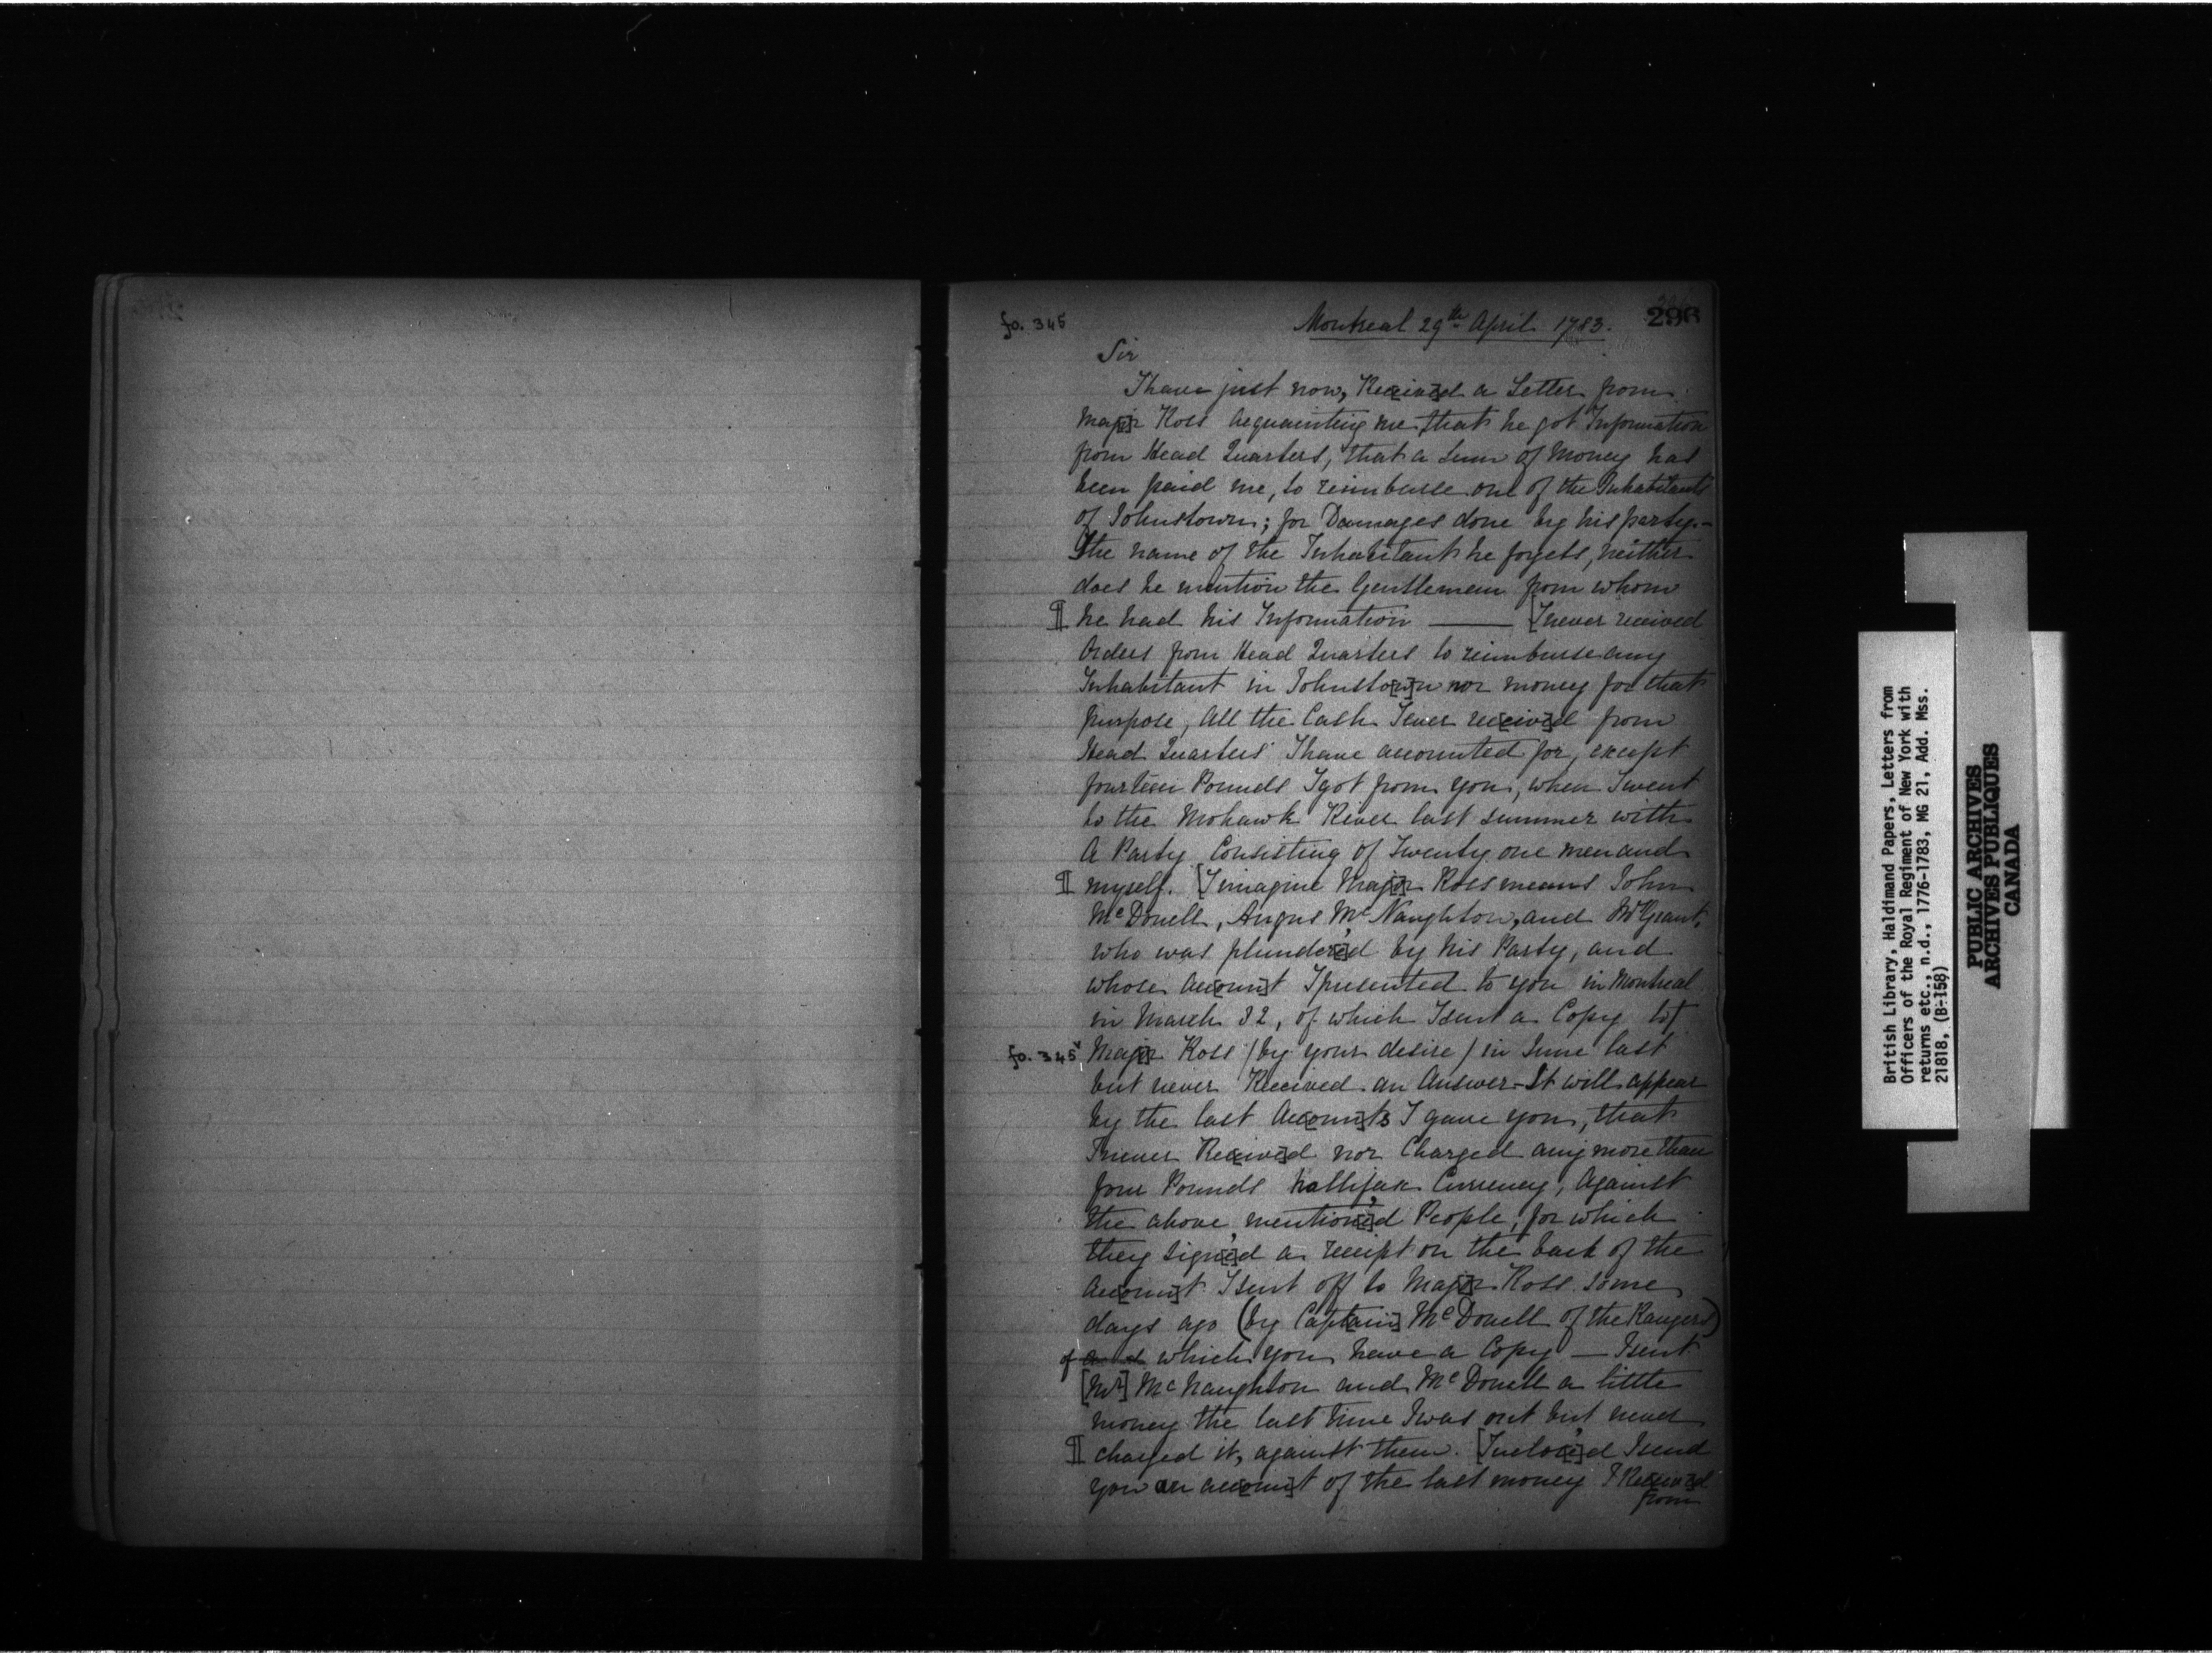 fo. 345
Montreal 29th April 1783.
296
Sir
I have just now, Rec[eive]d a Letter from
Maj[o]r Ross Acquainting me, that he got Information
from Head Quarters, that a Sum of Money has
been paid me, to reimburse one of the Inhabitants
of Johnstown; for Damages done by his party.-
The name of the Inhabitant he forgets, neither
does he mention the Gentleman from whom
¶ he had his Information —— [I never received
Orders from Head Quarters to reimburse any
Inhabitant in Johnsto[w]n nor money for that
purpose, All the Cash I ever rec[eive]d from
Head Quarters I have accounted for, except
fourteen Pounds I got from you, when I went
to the Mohawk River last summer with
A Party Consisting of Twenty one men and
¶ myself. [I imagine Maj[o]r Ross means John
McDonell, Angus McNaughton, and Mr Grant,
who was plunder'[e]d by his Party, and
whose Acc[oun]t I presented to you in Montreal
in March 82, of which I sent a Copy to
fo. 345v Maj[o]r Ross / by your desire / in June last
but never Received an Answer - It will appear
by the last Acc[oun]ts I gave you, that
I never Rec[eive]d nor Charged any more than
four Pounds hallifax Currency, Against
the above mention'[e]d People, for which
they sign'[e]d a receipt on the back of the
Acc[oun]t I sent off to Maj[o]r Ross some
days ago (by Capt[ain] McDonell of the Rangers)
of and which you have a Copy — I sent
[Mr] McNaughton and McDonell a little
money the last time I was out but never
¶ charged it, against them. [Inclos'[e]d I send
you an acc[oun]t of the last money I Rec[eive]d
from
British Library, Haldimand Papers, Letters from
Officers of the Royal Regiment of New York with
returns etc., n.d., 1776-1783, MG 21, Add. Mss.
21818, (B-158)
PUBLIC ARCHIVES
ARCHIVES PUBLIQUES
CANADA